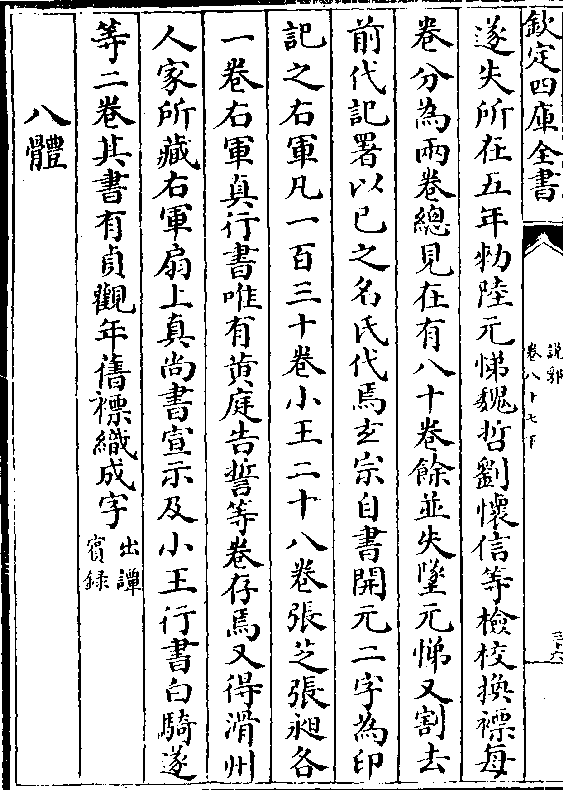 欽定四庫全書
說郛
卷八十七下
三十六
遂失所在五年勑陸元悌魏哲劉懷信等檢校換褾每
卷分為兩卷總見在有八十卷餘並失墜元悌又割去
前代記署以已之名氏代焉玄宗自書開元二字為印
記之右軍凡一百三十卷小王二十八卷張芝張昶各
一卷右軍真行書唯有黄庭告誓等卷存焉又得滑州
人家所藏右軍扇上真尚書宣示及小王行書白騎遂
等二卷其書有貞觀年舊褾織成字出譚賓録
八體